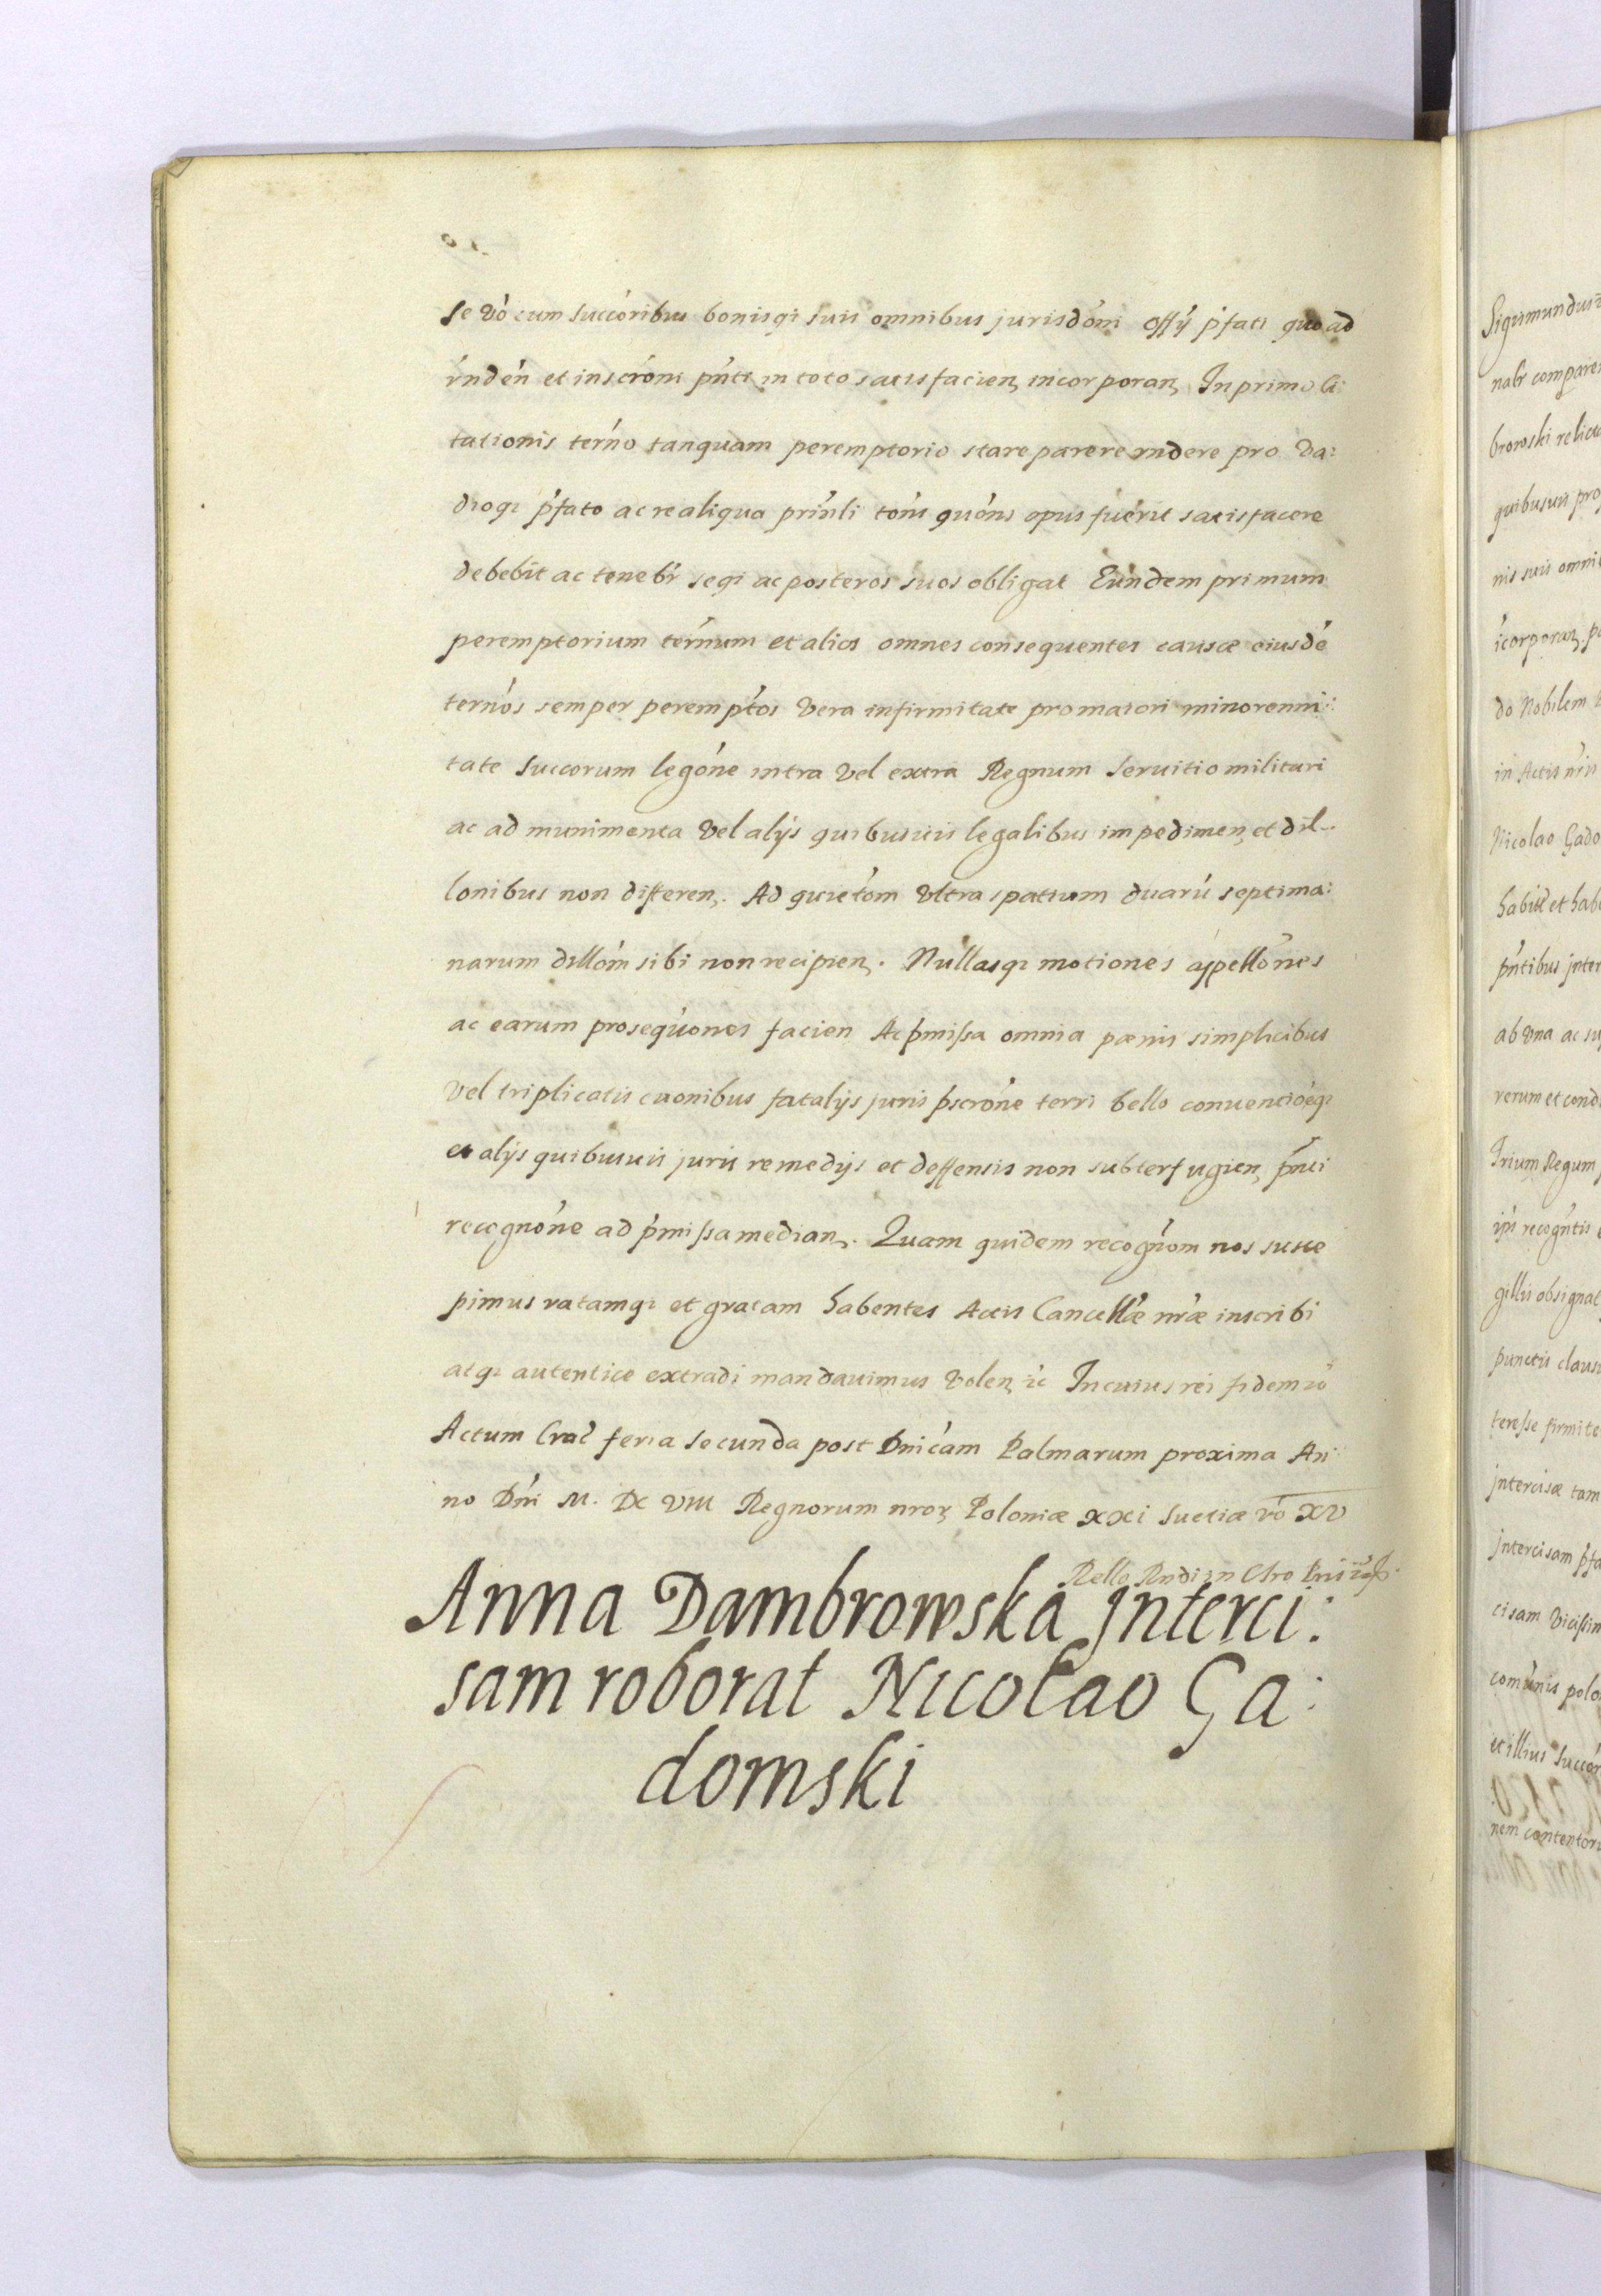 se vó cum succóribus bonisqꝫ suis omnibus jurisdóni offÿ p̓fati quoad
rńdeń et inscróni pńti in toto satisfacienꝫ incorporanꝫ In primo Ci:
tationis terńo tanquam peremptorio stare parere rndere pro va:
dioqꝫ p̓fato ac re aliqua prińli tóm quóns opus fúerit satisfacere
debebit ac tenebŕ seqꝫ ac posteros suos obligat Eundem primum
peremptorium terńum et alios omnes consequentes causæ eiusdé
terńos semper peremptós vera infirmitate pro maiori minorenni:
tate succorum legóne intra vel extra Regnum servitio militari
ac ad munimenta vel alÿs quibusuis legalibus impedimenꝫ et dil:
lonibus non differenꝫ. Ad quietóm vltra spatium duarú septima:
narum dillóm sibi non recipienꝫ. Nullasqꝫ motiones appellónes
ac earum prosequónes facien Ac p̓missa omnia pœnis simplicibus
vel triplicatis euonibus fatalÿs juris p̓scróne terri bello conuencióeqꝫ
et alÿs quibusuis juris remedÿs et deffensis non subterfugienꝫ p̓nti
recognóne ad p̓missa medianꝫ. Quam quidem recognóm nos susce
pimus ratamqꝫ et gratam habentes Actis Cancellǽ nrǽ inscribi
atqꝫ autentice extradi mandauimus volenꝫ ꝛc In cuius rei fidem ꝛc
Actum Crac feria secunda post Dnicam Palmarum proxima An
no Dńi M. DC VIII Regnorum nroꝫ Poloniæ xxi Suetiæ vó XV
Anna Dambrowska Jnterci:
sam roborat Nicolao Ga:
domski
Sigismundus
nalr comparen
browski relicta
quibusuis
nis suis omni
icorporanꝫ
do Nobilem
in Actis
Nicolao Gado
habitꝫ et hab
pńtibus jnter
ab vna ac
verum et
Trium Regum
ipi recogńtis
gillis obsignat
punctis claus
teresse firmite
jntercisæ tam
jntercisam p̓fa
cisam
comúnis polo
et illius succor
nem contentor